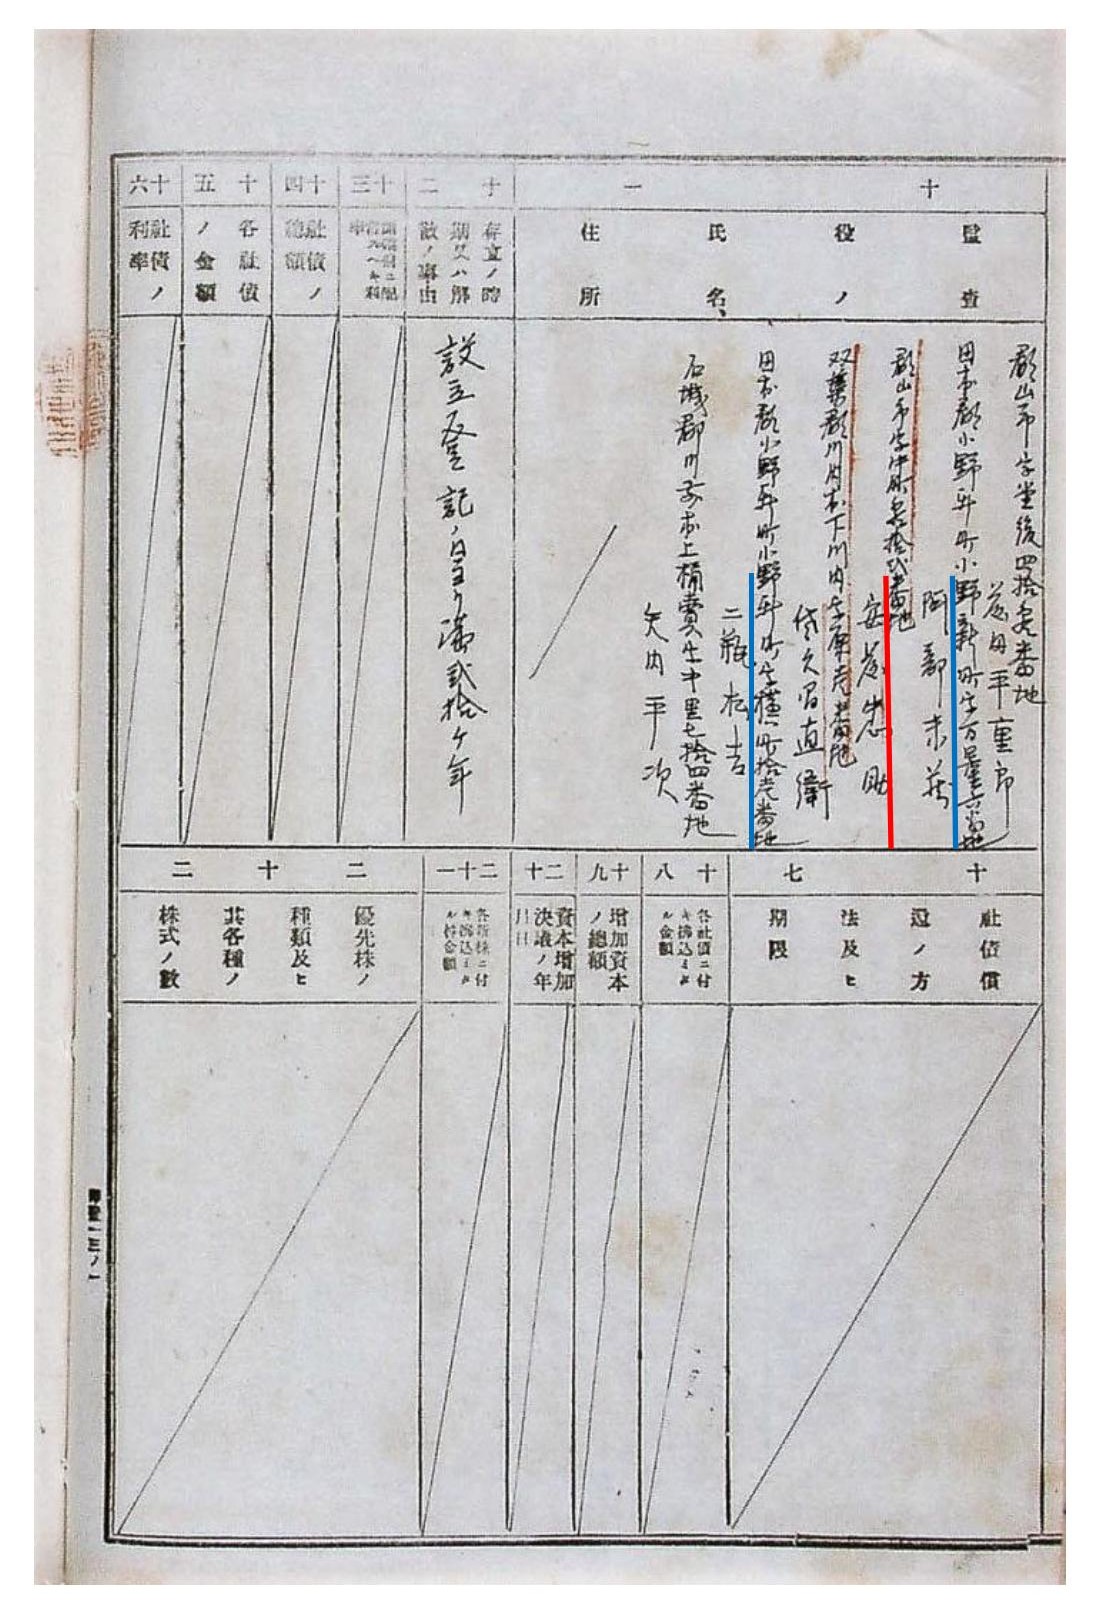 十一
監査役ノ氏名、住所
郡山市字堂後四拾壱番地
菅田平重郎
田村郡小野新町小野新町字万景六番地
阿部末蔵
郡山市字中町壱拾弐番地
安藤忠助
双葉郡川内村下川内字原壱番地
佐久間直衛
田村郡小野新町小野新町字横町拾壱番地
二瓶松吉
石城郡川前村上桶賣字中里七拾四番地
矢内平次
十二
存立ノ時期又ハ解散ノ事由
設立登記ノ日ヨリ満弐拾ケ年
十三
十四
社債ノ総額
十五
各社債ノ金額
十六
社債ノ利率
十七
社債償還ノ方法及ヒ期限
十八
各社債ニ付キ拂込ミタル金額
十九
増加資本ノ總額
二十
資本増加決議ノ年月日
二十一
各新株ニ付キ拂込ミタル株金額
二十二
優先株ノ種類及ヒ其各種ノ株式ノ數